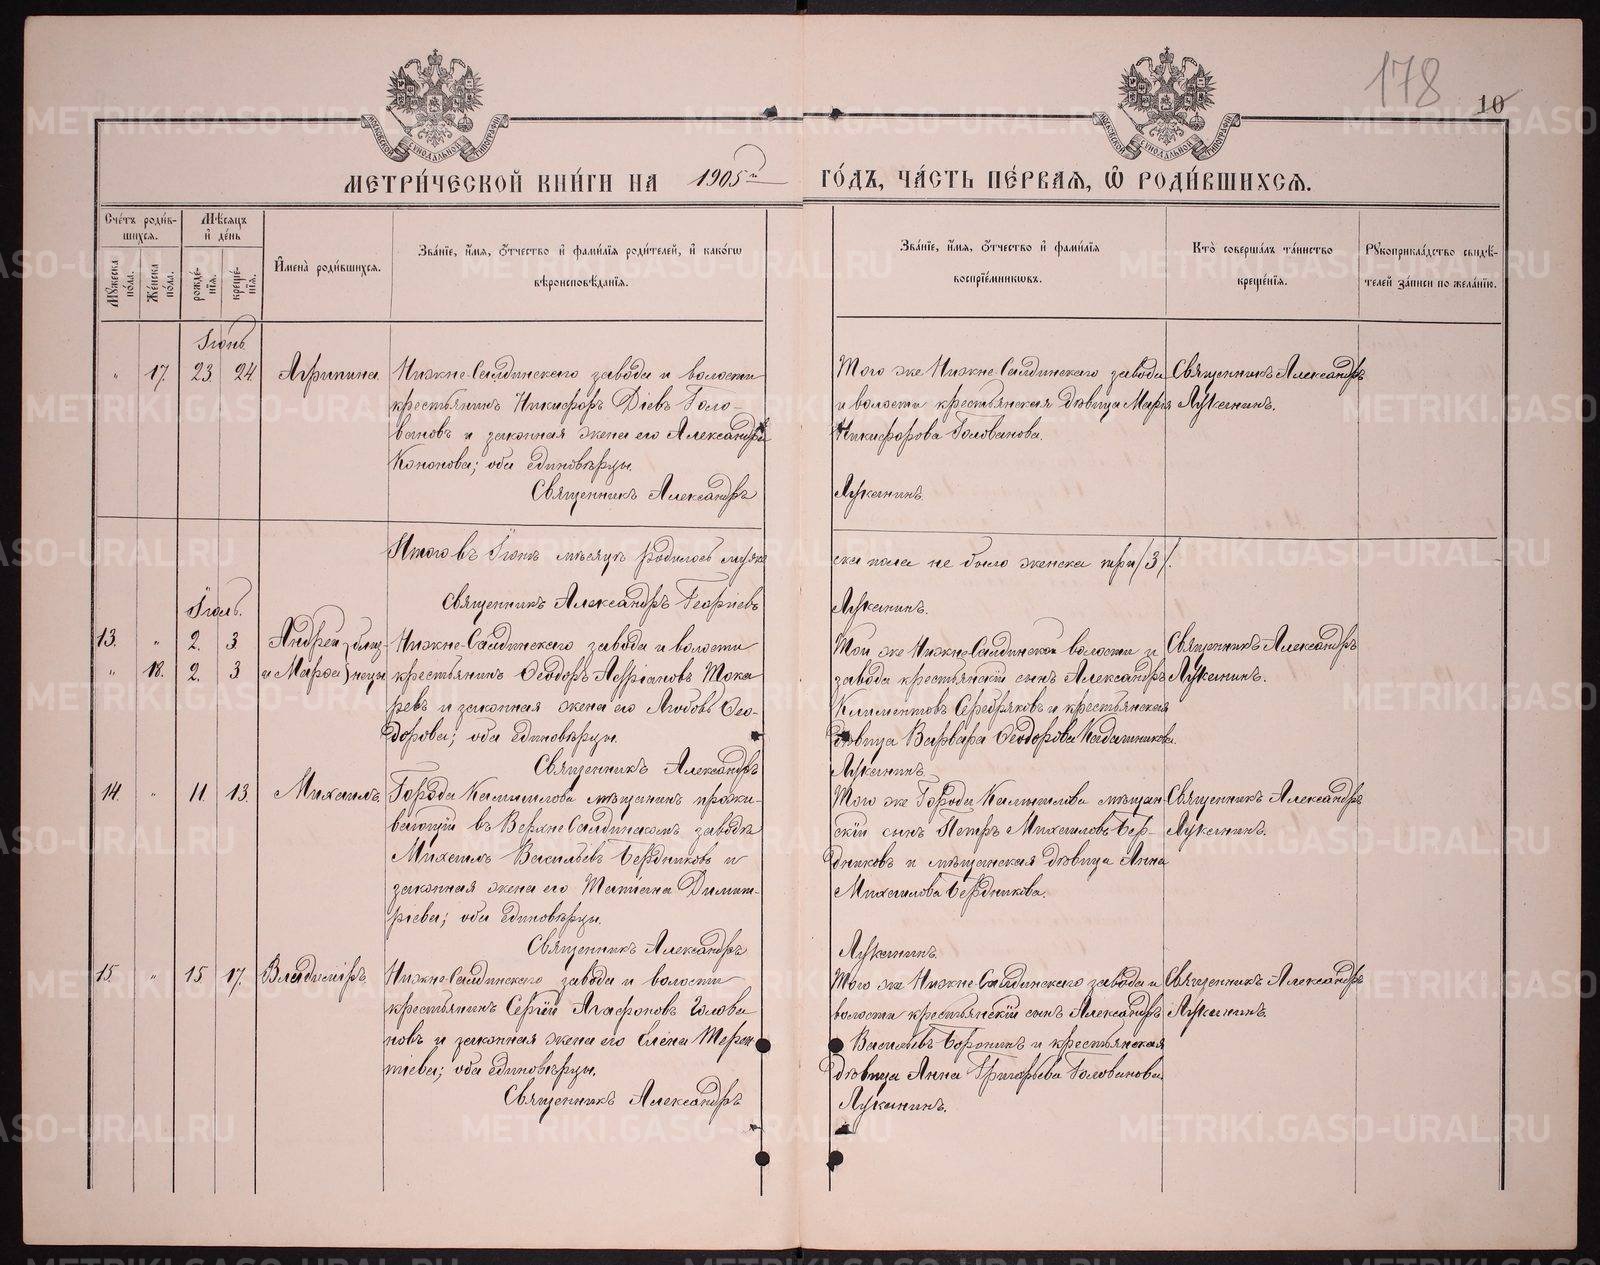 178
10
МЕТРИ́ЧЕСКОЙ КНИ́ГИ НА 1905й ГО́ДЪ, ЧА́СТЬ ПЕ́РВАЯ, Ѡ РОДИ́ВШИХСЯ.
Сче́тъ роди́в-
шихся.
Мѣ́сяцъ
и҆ де́нь
Му́жеска по́ла.
Же́нска по́ла.
рожде́-
нїя.
креще́-
нїя.
И҆мена̀ роди́вшихся.
Зва́нїе, и҆́мя, ѻ҆́тчество и҆ фами́лїя роди́телей, и҆ како́гѡ
вѣроисповѣ́данїя.
Зва́нїе, и҆́мя, ѻ҆́тчество и҆ фами́лїя
воспрїе́мникѡвъ.
Кто̀ соверша́лъ та́инство
креще́нїя.
Рꙋкоприкла́дство свидѣ́-
телей за́писи по жела́нїю.
Іюнь
" 17. 23 24 Агрипина
Нижне-Салдинскаго завода и волости
крестьянинъ Никифоръ Діевъ Голо-
вановъ и законная жена его Александра
Кононова; оба единовѣрцы.
Священникъ Александръ Лукачинъ.
Того же Нижне-Салдинскаго завода
и волости крестьянская дѣвица Марія
Никифорова Голованова.
Священникъ Александръ
Лукачинъ.
Итого въ Іюнѣ мѣсяцѣ родилось муже
ска пола не было женска три /3/.
Священникъ Александръ Георгіевъ Лукачинъ.
Іюль.
13. " 2. 3. Андрей } близ-
" 18. 2. 3 и Марѳа } нецы
Нижне-Салдинскаго завода и волости
крестьянинъ Ѳеодоръ Адріановъ Тока
ревъ и законная жена его Любовь Ѳео-
дорова; оба единовѣрцы.
Священникъ Александръ Лукачинъ.
Той же Нижне-Салдинской волости и
завода крестьянскій сынъ Александръ
Климентовъ Серебряковъ и крестьянская
дѣвица Варвара Ѳеодорова Кадашникова.
Священникъ Александръ
Лукачинъ.
14. " 11. 13. Михаилъ
Города Камышлова мѣщанинъ прожи-
вающій въ Верхне-Салдинскомъ заводѣ
Михаилъ Васильевъ Бердниковъ и
законная жена его Татіана Димит-
ріева; оба единовѣрцы.
Священникъ Александръ Лукачинъ.
Того же Города Камышлова мѣщан
скій сынъ Петръ Михаиловъ Бер-
дниковъ и мѣщанская дѣвица Анна
Михаилова Бердникова.
Священникъ Александръ
Лукачинъ.
15. " 15 17. Владиміръ
Нижне-Салдинскаго завода и волости
крестьянинъ Сергій Агафоновъ Голова
новъ и законная жена его Елена Терен
тіева; оба единовѣрцы.
Священникъ Александръ Лукачинъ.
Того же Нижне-Салдинскаго завода и
волости крестьянскій сынъ Александръ
Васильевъ Воронинъ и крестьянская
дѣвица Анна Григорьева Голованова.
Священникъ Александръ
Лукачинъ.
METRIKI.GASO-URAL.RU